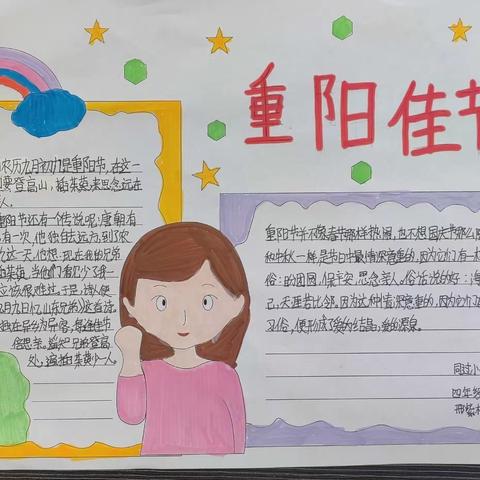 重阳佳节
农历九月初九是重阳节,在这一
要登高山,插茱萸来思念远在
人。
重阳节还有一个传说呢:唐朝有
有一次,他独自去远方,到了农
九这一天,他想:现在我的兄弟
茱萸,当他们看见少了我一
应该很难过。于是,诗人便
九月九日忆山东兄弟》这首诗。
独在异乡为异客,每逢佳节
倍思亲。遥知兄弟登高
处,遍插茱萸少一人。
重阳节并不像春节那样热闹,也不想国庆节那么
一样,是节日中最情深意重的,因为它们有一
俗:的团圆,保平安,思念亲人。俗话说的好:海
己,天涯若比邻。因为这种情深意重的,因为它
习俗,便形成了爱的结晶,爱的源泉。
同过小
四年级
邢